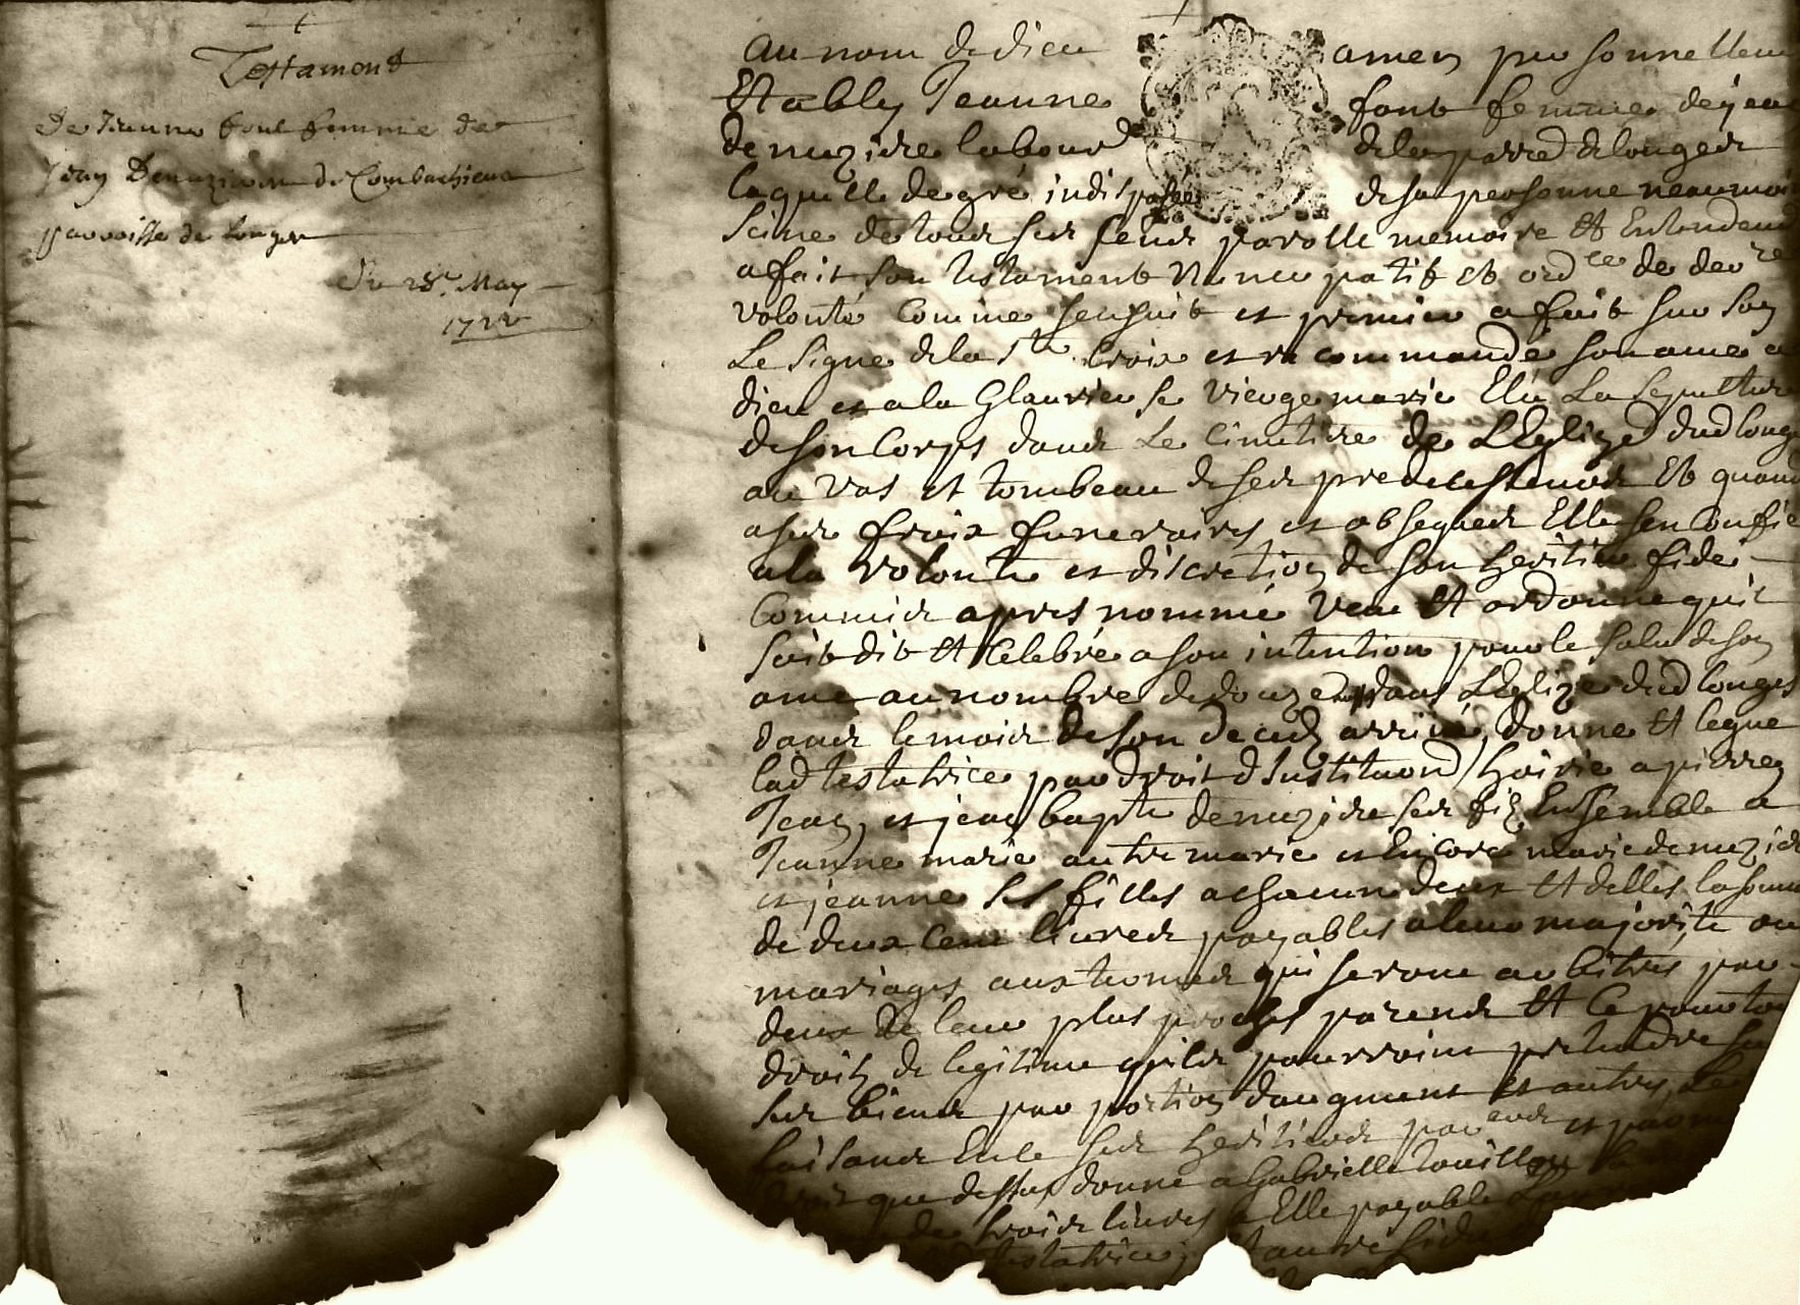 Testament
De Jeanne font femme de
Jean Demuziere de Combachieux
parroisse de Longes
Du 28e May
au nom de dieu amen personnellem
Etably Jeanne font femme de jean
demuzière labour de la parre de longes
laquelle de gré indisposée de sa personne neaumoi
Seine de tous ses sens parolle memoire Et Entendem
a fait son testament Nuncupatif et ordce de dere
volonté Comme sensuit et premier a fait sur soy
Le Signe de la Ste Croix et recommandé son ame a
dieu et a la Glaurieuse vierge marie Elu La Sepulture
de son Corps dans Le Cimetiere de LEglize dud longe
au vas et tombeau de ses predecesseurs Et quand
a ses fraix funeraires et obseques Elle sen Confie
a la volonte et discretion de son heritier fidei
Commis apres nommé veu Et ordonne quil
soit dit Et Celebré a son intention pour le salu de son
ame au nombre de douze dans LEglize dud longes
dans le mois de son deceds arrivé, donne Et legue
lad testatrice par droit dInstituaon hoirie a pierre
Jean, et jean bapte demuzière ses filz Ensemble a
Jeanne marie autre marie et Encore marie demuzie
et jeanne ses filles a chacun deux Et delles la somm
de deux Cent livres payables a leur majorité ou
mariages aux termes qui seront arbitrés par
deux de leur plus proches parens Et Ce pour tou
droitz de legitime quils pourroint pretendre su
ses biens par portion daugment et autres
faisant Elle ses heritiers par
que dessus donne a Gabrielle
de trois livres a Elle payable
testatrice